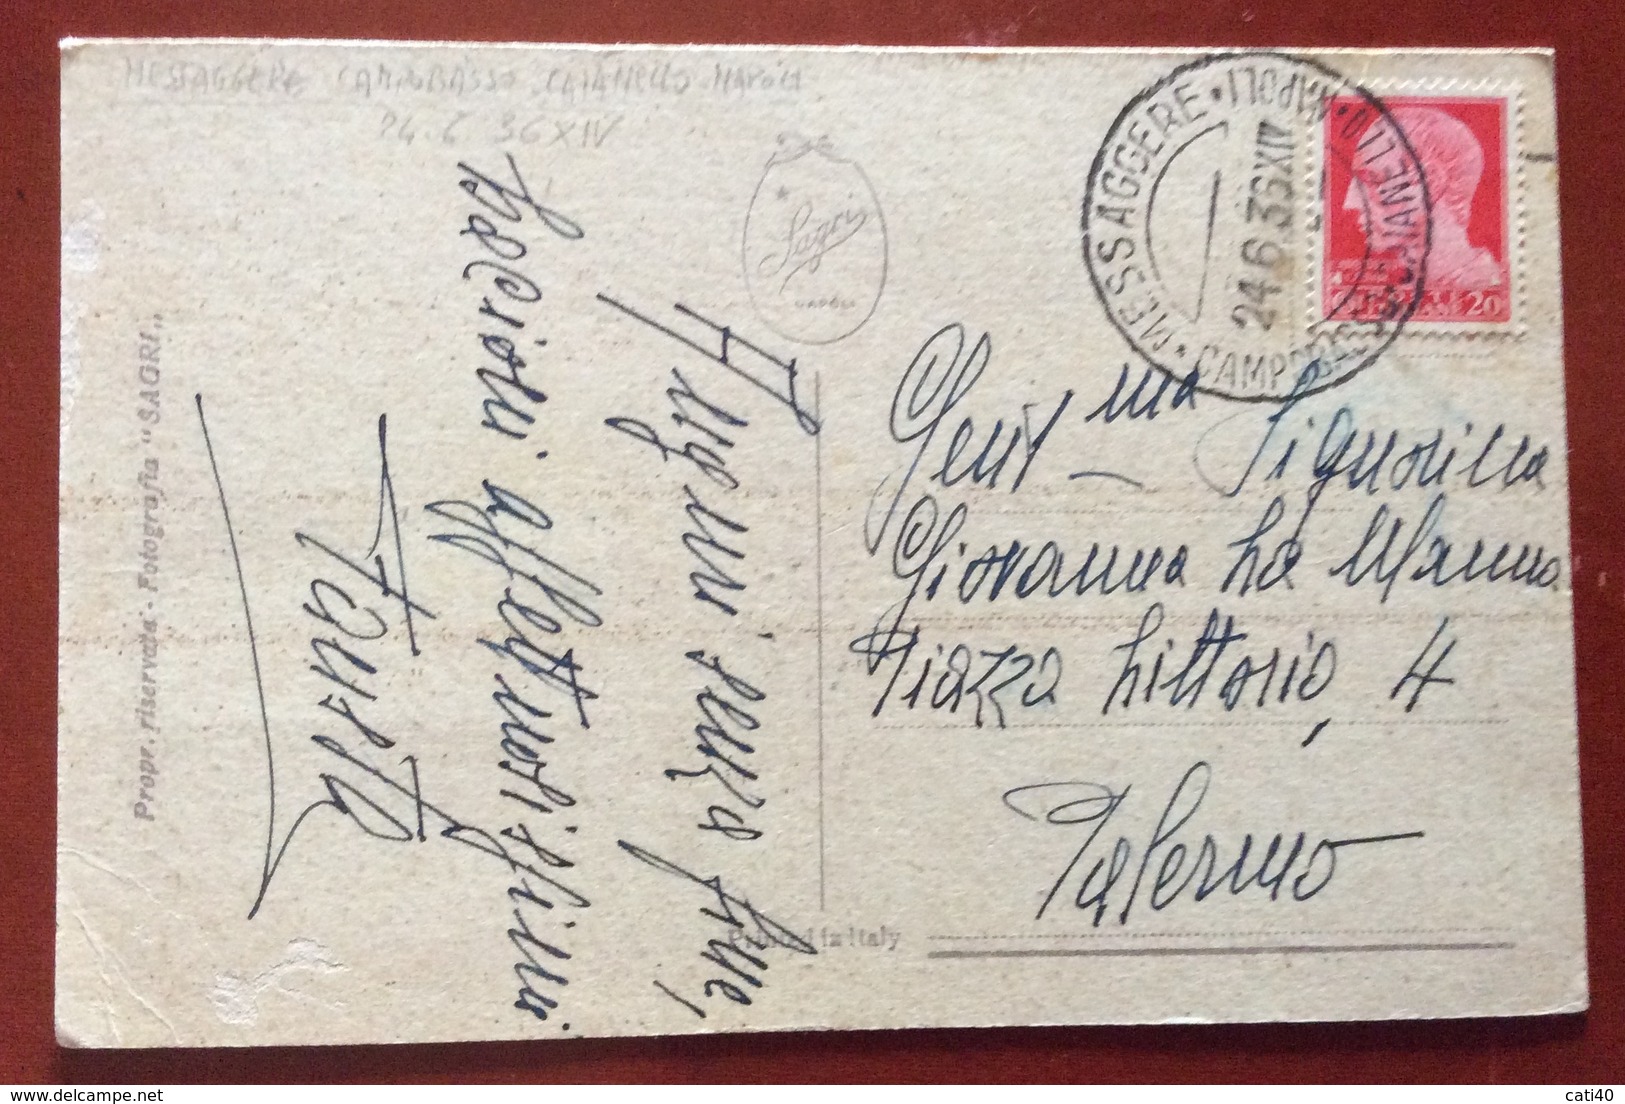 MESSAGGERE CAMPOBASSO CAIANELLO NAPOLI
24.6 36 XIV
Sagri
NAPOLI
MESSAGGERE • CAMPOBASSO • CAIANELLO • NAPOLI •
24 6 36 XIV
20
Gent ma Signorina
Giovanna La Manna
Piazza Littorio, 4
Palermo
Auguri senza fine,
bacioni affettuosissimi
Fausta
Propr. riservata - Fotografia "SAGRI"
Printed in Italy
cati40